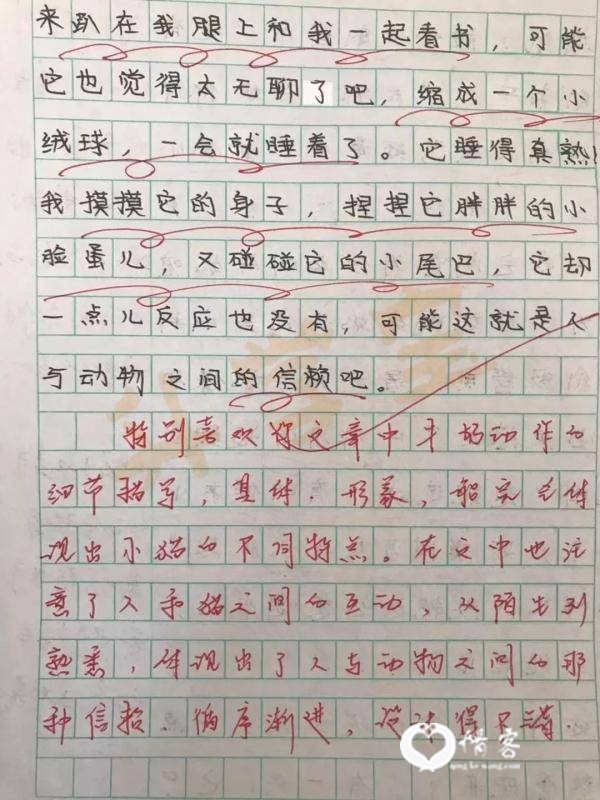 来趴在我腿上和我一起看书，可能
它也觉得太无聊了吧，缩成一个小
绒球，一会就睡着了。它睡得真熟！
我摸摸它的身子，捏捏它胖胖的小
脸蛋儿，又碰碰它的小尾巴，它却
一点儿反应也没有，可能这就是人
与动物之间的信赖吧。
特别喜欢你文章中 动作的
细节描写，具体，形象，能完全体
现出小猫的不同特点。在文中也注
意了人和猫之间的互动，从陌生到
熟悉，体现出了人与动物之间的那
种信赖．循序渐进，设计得
情客
qing ke wang.com